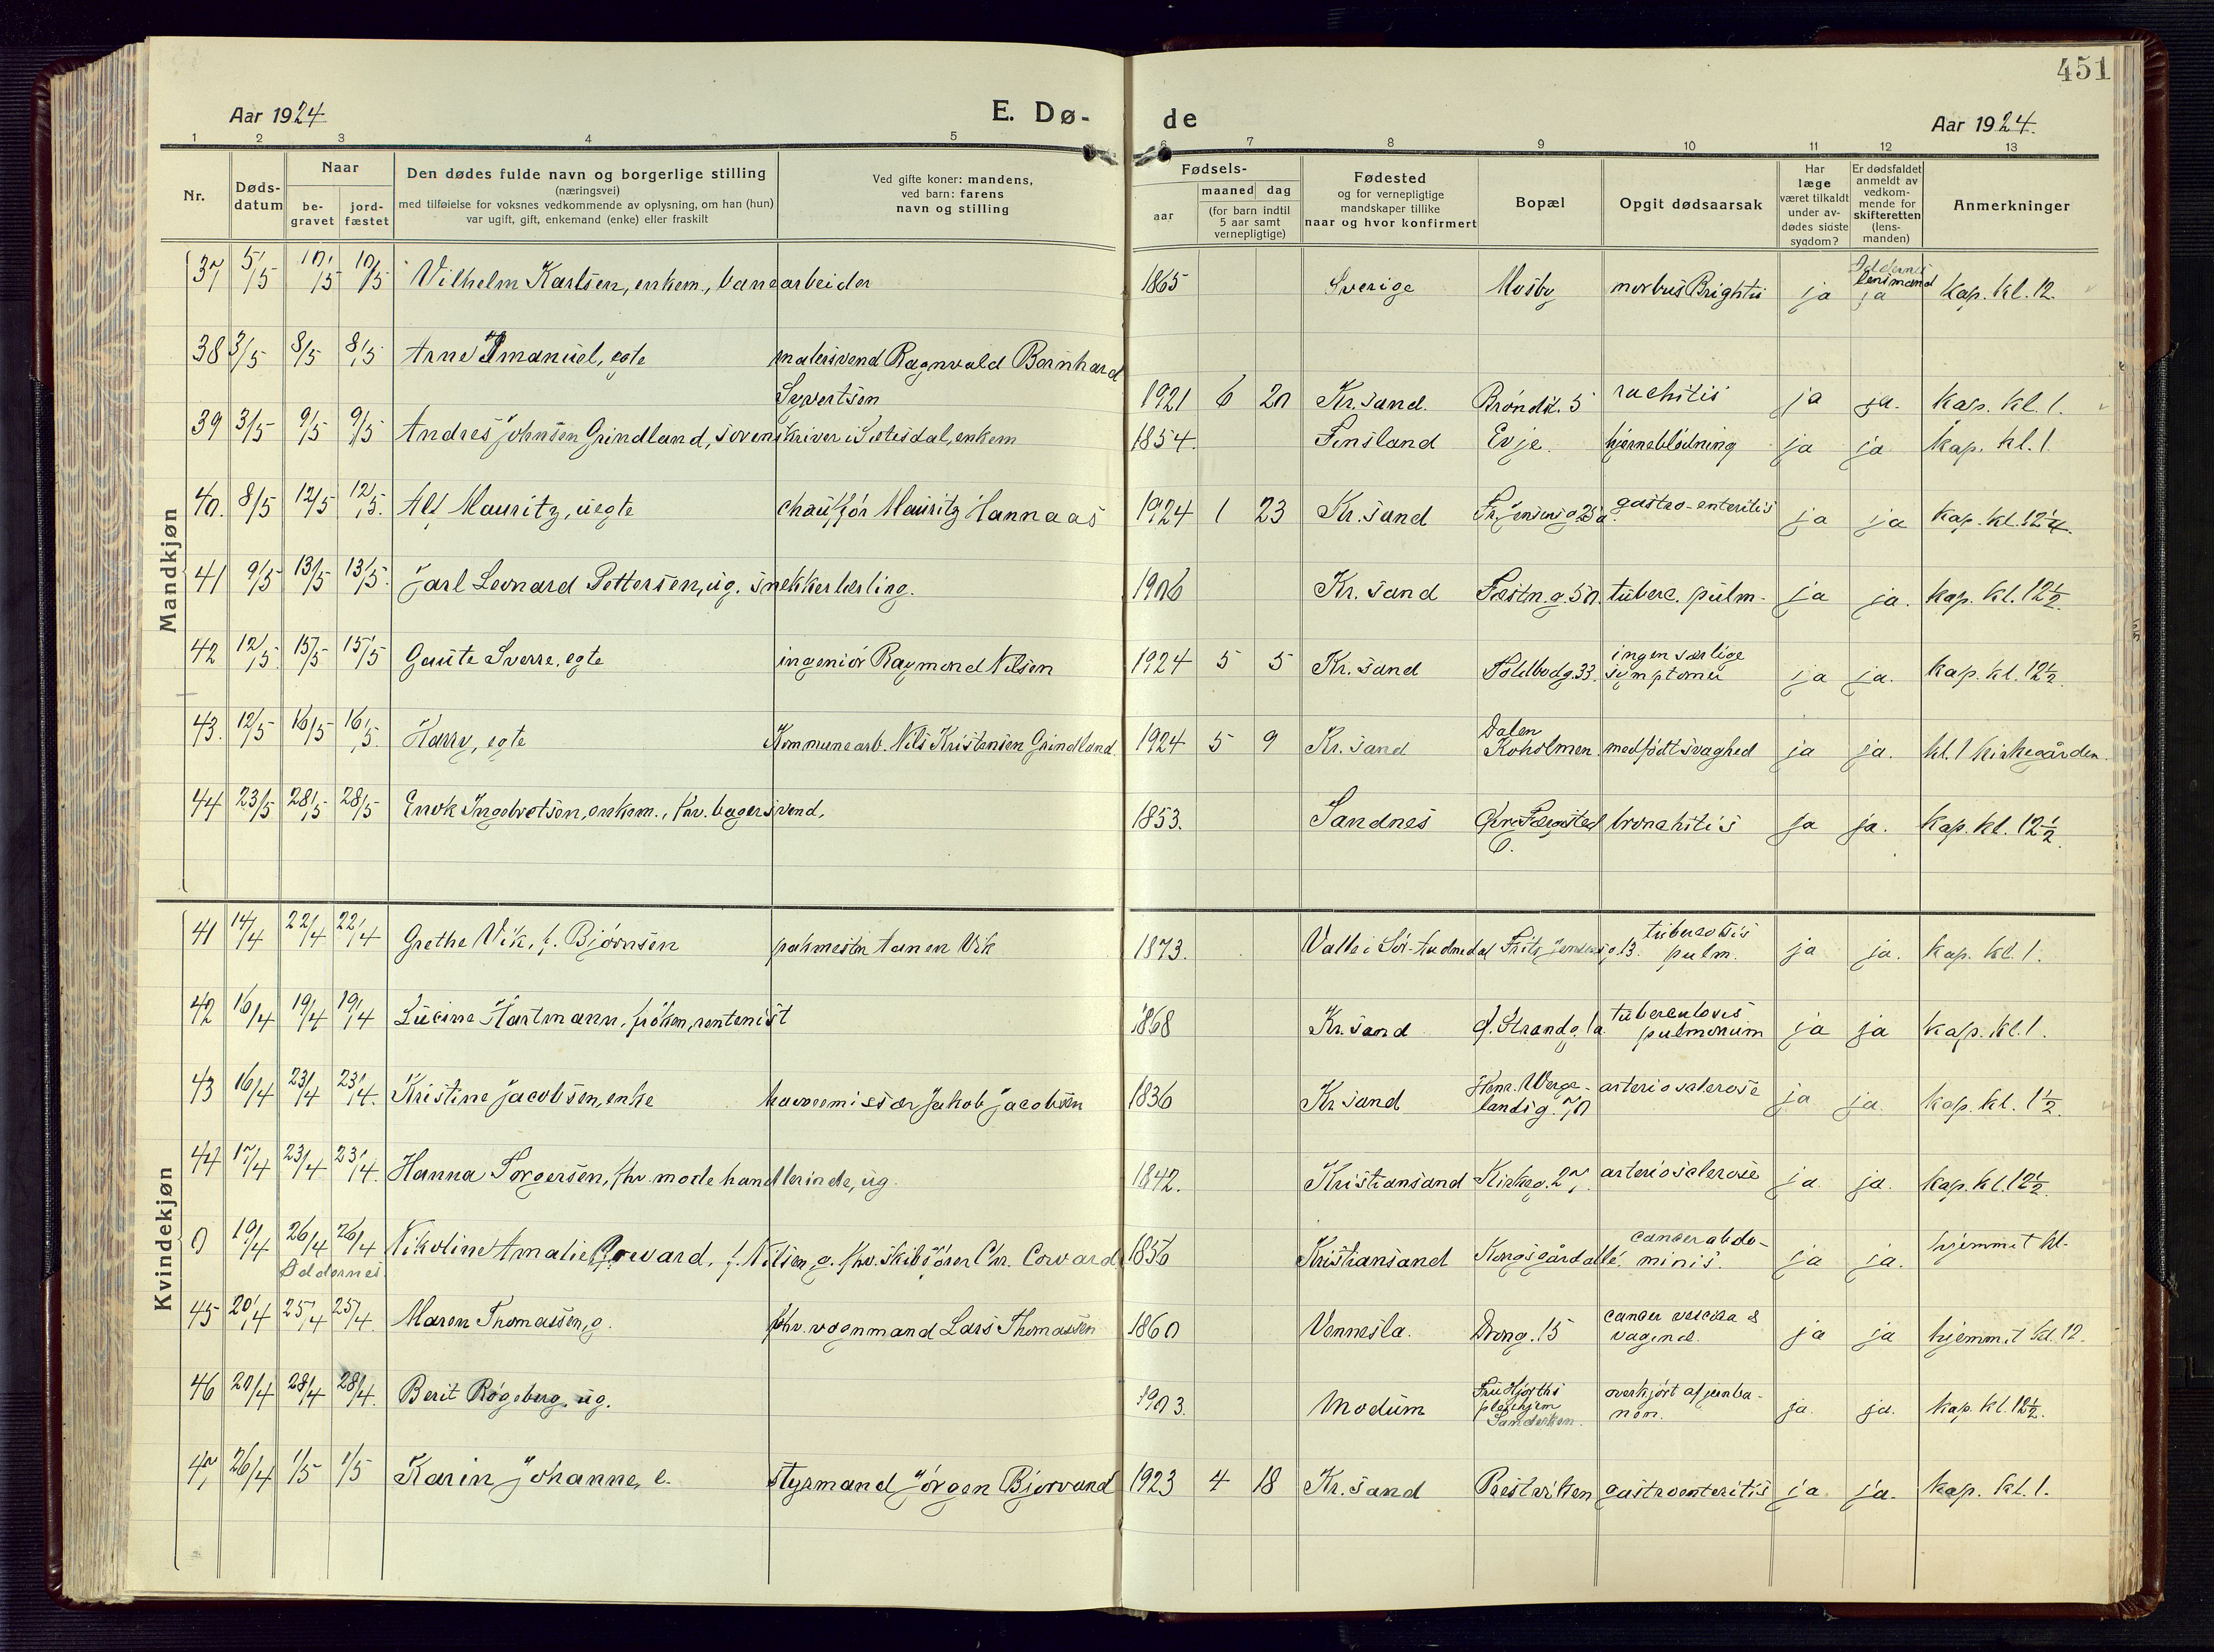 451
Aar 1924
E. Dø-
de
Aar 1924.
1 2 3 4 5 6 7 8 9 10 11 12 13
Nr.
Døds-
datum
Naar
be-
gravet
jord-
fæstet
Den dødes fulde navn og borgerlige stilling
(næringsvei)
med tilføielse for voksnes vedkommende av oplysning, om han (hun)
var ugift, gift, enkemand (enke) eller fraskilt
Ved gifte koner: mandens,
ved barn: farens
navn og stilling
Fødsels-
aar
maaned dag
(for barn indtil
5 aar samt
vernepligtige)
Fødested
og for vernepligtige
mandskaper tillike
naar og hvor konfirmert
Bopæl
Opgit dødsaarsak
Har
læge
været tilkaldt
under av-
dødes sidste
sygdom?
Er dødsfaldet
anmeldt av
vedkom-
mende for
skifteretten
(lens-
manden)
Anmerkninger
Mandkjøn
37 5/5 10/5 10/5 Vilhelm Karlsen, enkem., banearbeider 1865 Sverige Mosby morbus Brightii ja Oddernes lensmand ja kap. kl. 12.
38 3/5 8/5 8/5 Arne Emanuel, egte malersvend Ragnvald Bernhard
Syvertsen 1921 6 20 Kr.sand. Brøndk. 5 rachitis ja ja. kap. kl. 1.
39 3/5 9/5 9/5 Andres Johnsen Grindland, sorenskriver i Sætesdal, enkem 1854. Finsland Evje. hjerneblødning ja ja kap. kl. 1.
40. 8/5 12/5 12/5. Alf Mauritz, uegte chauffør Mauritz Hannaas 1924 1 23 Kr.sand Fr. Jensens g. 25a gastro-enteritis ja ja kap. kl. 12 1/4.
41 9/5 13/5 13/5. Jarl Leonard Pettersen, ug. snekkerlærling. 1906 Kr. sand Festn.g. 50. tuberc. pulm. ja ja. kap. kl. 12 1/2
42 12/5. 15/5 15/5 Gaute Sverre, egte ingeniør Raymond Nilsen 1924 5 5 Kr. sand Toldbodg. 33. ingen særlige
symptomer ja ja. kap. kl. 12 1/2.
43. 12/5 16/5 16/5. Harry, egte Kommunearb. Nils Kristensen Grindland. 1924 5 9 Kr. sand Dalen
Koholmen. medfødt svaghed ja ja. kl. 1 kirkegården.
44 23/5 28/5 28/5 Enok Ingebretsen, enkem., fhv. bagersvend, 1853. Sandnes bronchitis ja ja. kap. kl. 12 1/2.
Kvindekjøn
41 14/4 22/4 22/4 Grethe Vik, f. Bjørnsen pakmester Vik 1873. Valle i Sør-Audnedal Fritz Jensens g. 13. tuberculosis
pulm. ja ja. kap. kl. 1.
42 16/4 19/4 19/4 Lucine Hartmann, frøken, rentenist 1868 Kr. sand Ø. Strandg. 1a tuberculosis
pulmonum ja ja kap. kl. 1.
43 16/4 23/4 23/4. Kristine Jacobsen, enke Jakob Jacobsen 1836 Kr sand Henr. Werge-
landsg. 70 arteriosclerose ja ja. kap. kl. 1 1/2.
44 17/4 23/4 23/4. Hanna Torgersen, fhv. modehandlerinde, ug. 1842. Kristiansand Kirkeg. 27. arteriosclerose ja ja. kap. kl. 12 1/2.
0 19/4 26/4 26/4 Nikoline Amalie Coward, f. Nilsen, g. fhv. skibsfører Chr. Coward 1856 Kristiansand Kongsgård allé. cancer abdo-
minis. ja ja. hjemmet kl.
Oddernes.
45 20/4 25/4 25/4. Maren Thomassen, g. fhv. vognmand Lars Thomassen 1860 Vennesla. Drong. 15 cancer vesicæ &
vaginæ. ja ja hjemmet kl. 12.
46 20/4 28/4 28/4. Berit Røgeberg, ug. 1903. Modum Fru Hjorths
pleiehjem
overkjørt af jernba-
nen. ja. ja. kap. kl. 12 1/2.
47 26/4 1/5 1/5 Karin Johanne, e. styrmand Jørgen Bjorvand 1923 4 18 Kr. sand Prestviken gastroenteritis ja ja. kap. kl. 1.